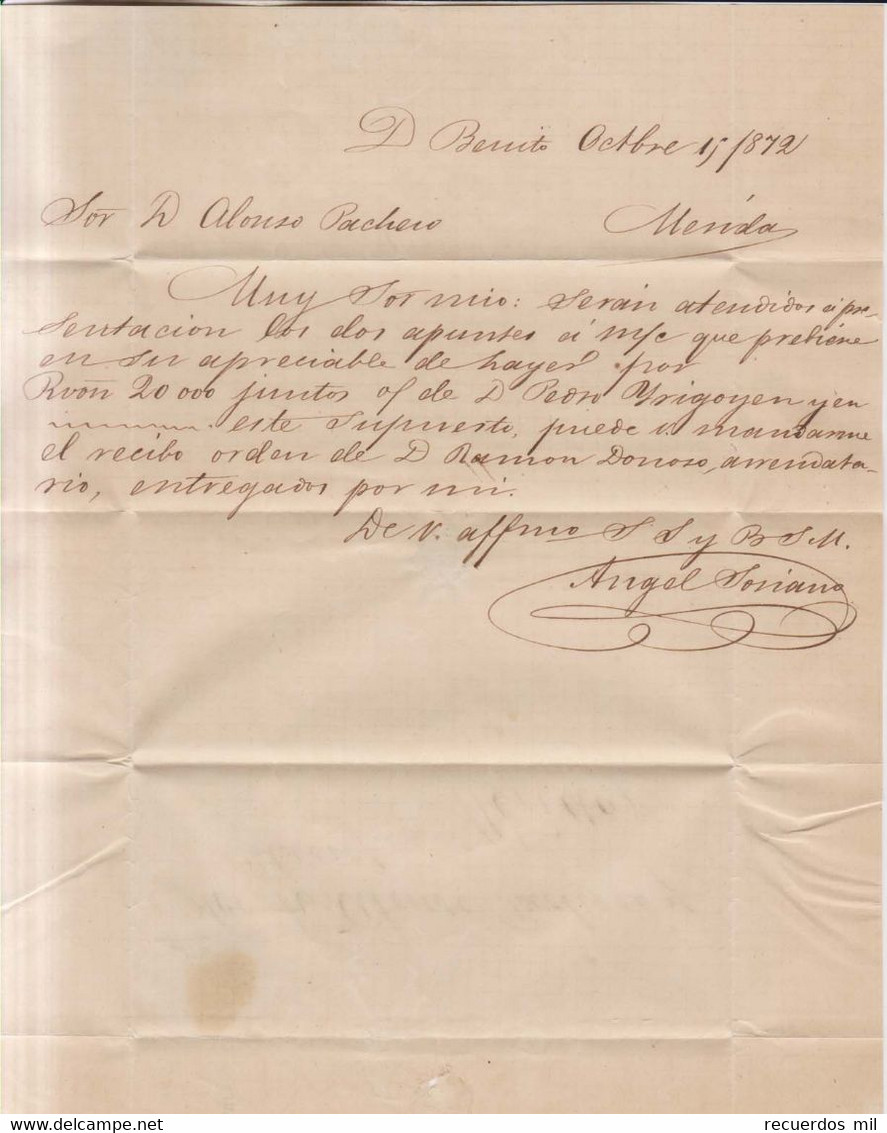 D Benito Octbre 15/872
Sor D Alonso Pacheco Merida
Muy Sor mio: Serán atendidos á pre-
sentacion los dos apuntes á m/c que prebiene
en su apreciable de hayer por
Rvon 20000 juntos o/ de D Pedro Yrigoyen y en
este supuesto, puede v. mandarme
el recibo orden de D Ramon Donoso, arrendata-
rio, entregados por mi.
De V. affmo S S y B S. M.
Angel Soriano
recuerdos mil